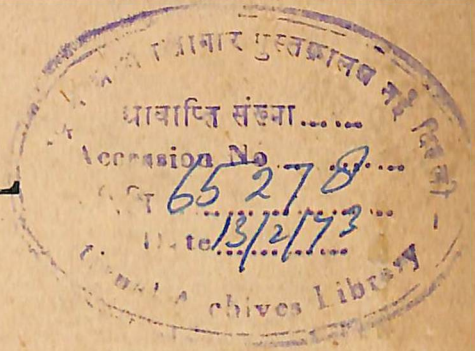 पुस्तकालय नई दिल्ली
अवाप्ति संख्या......
Accession No...........
65278
Date 13/2/73
Archives Library